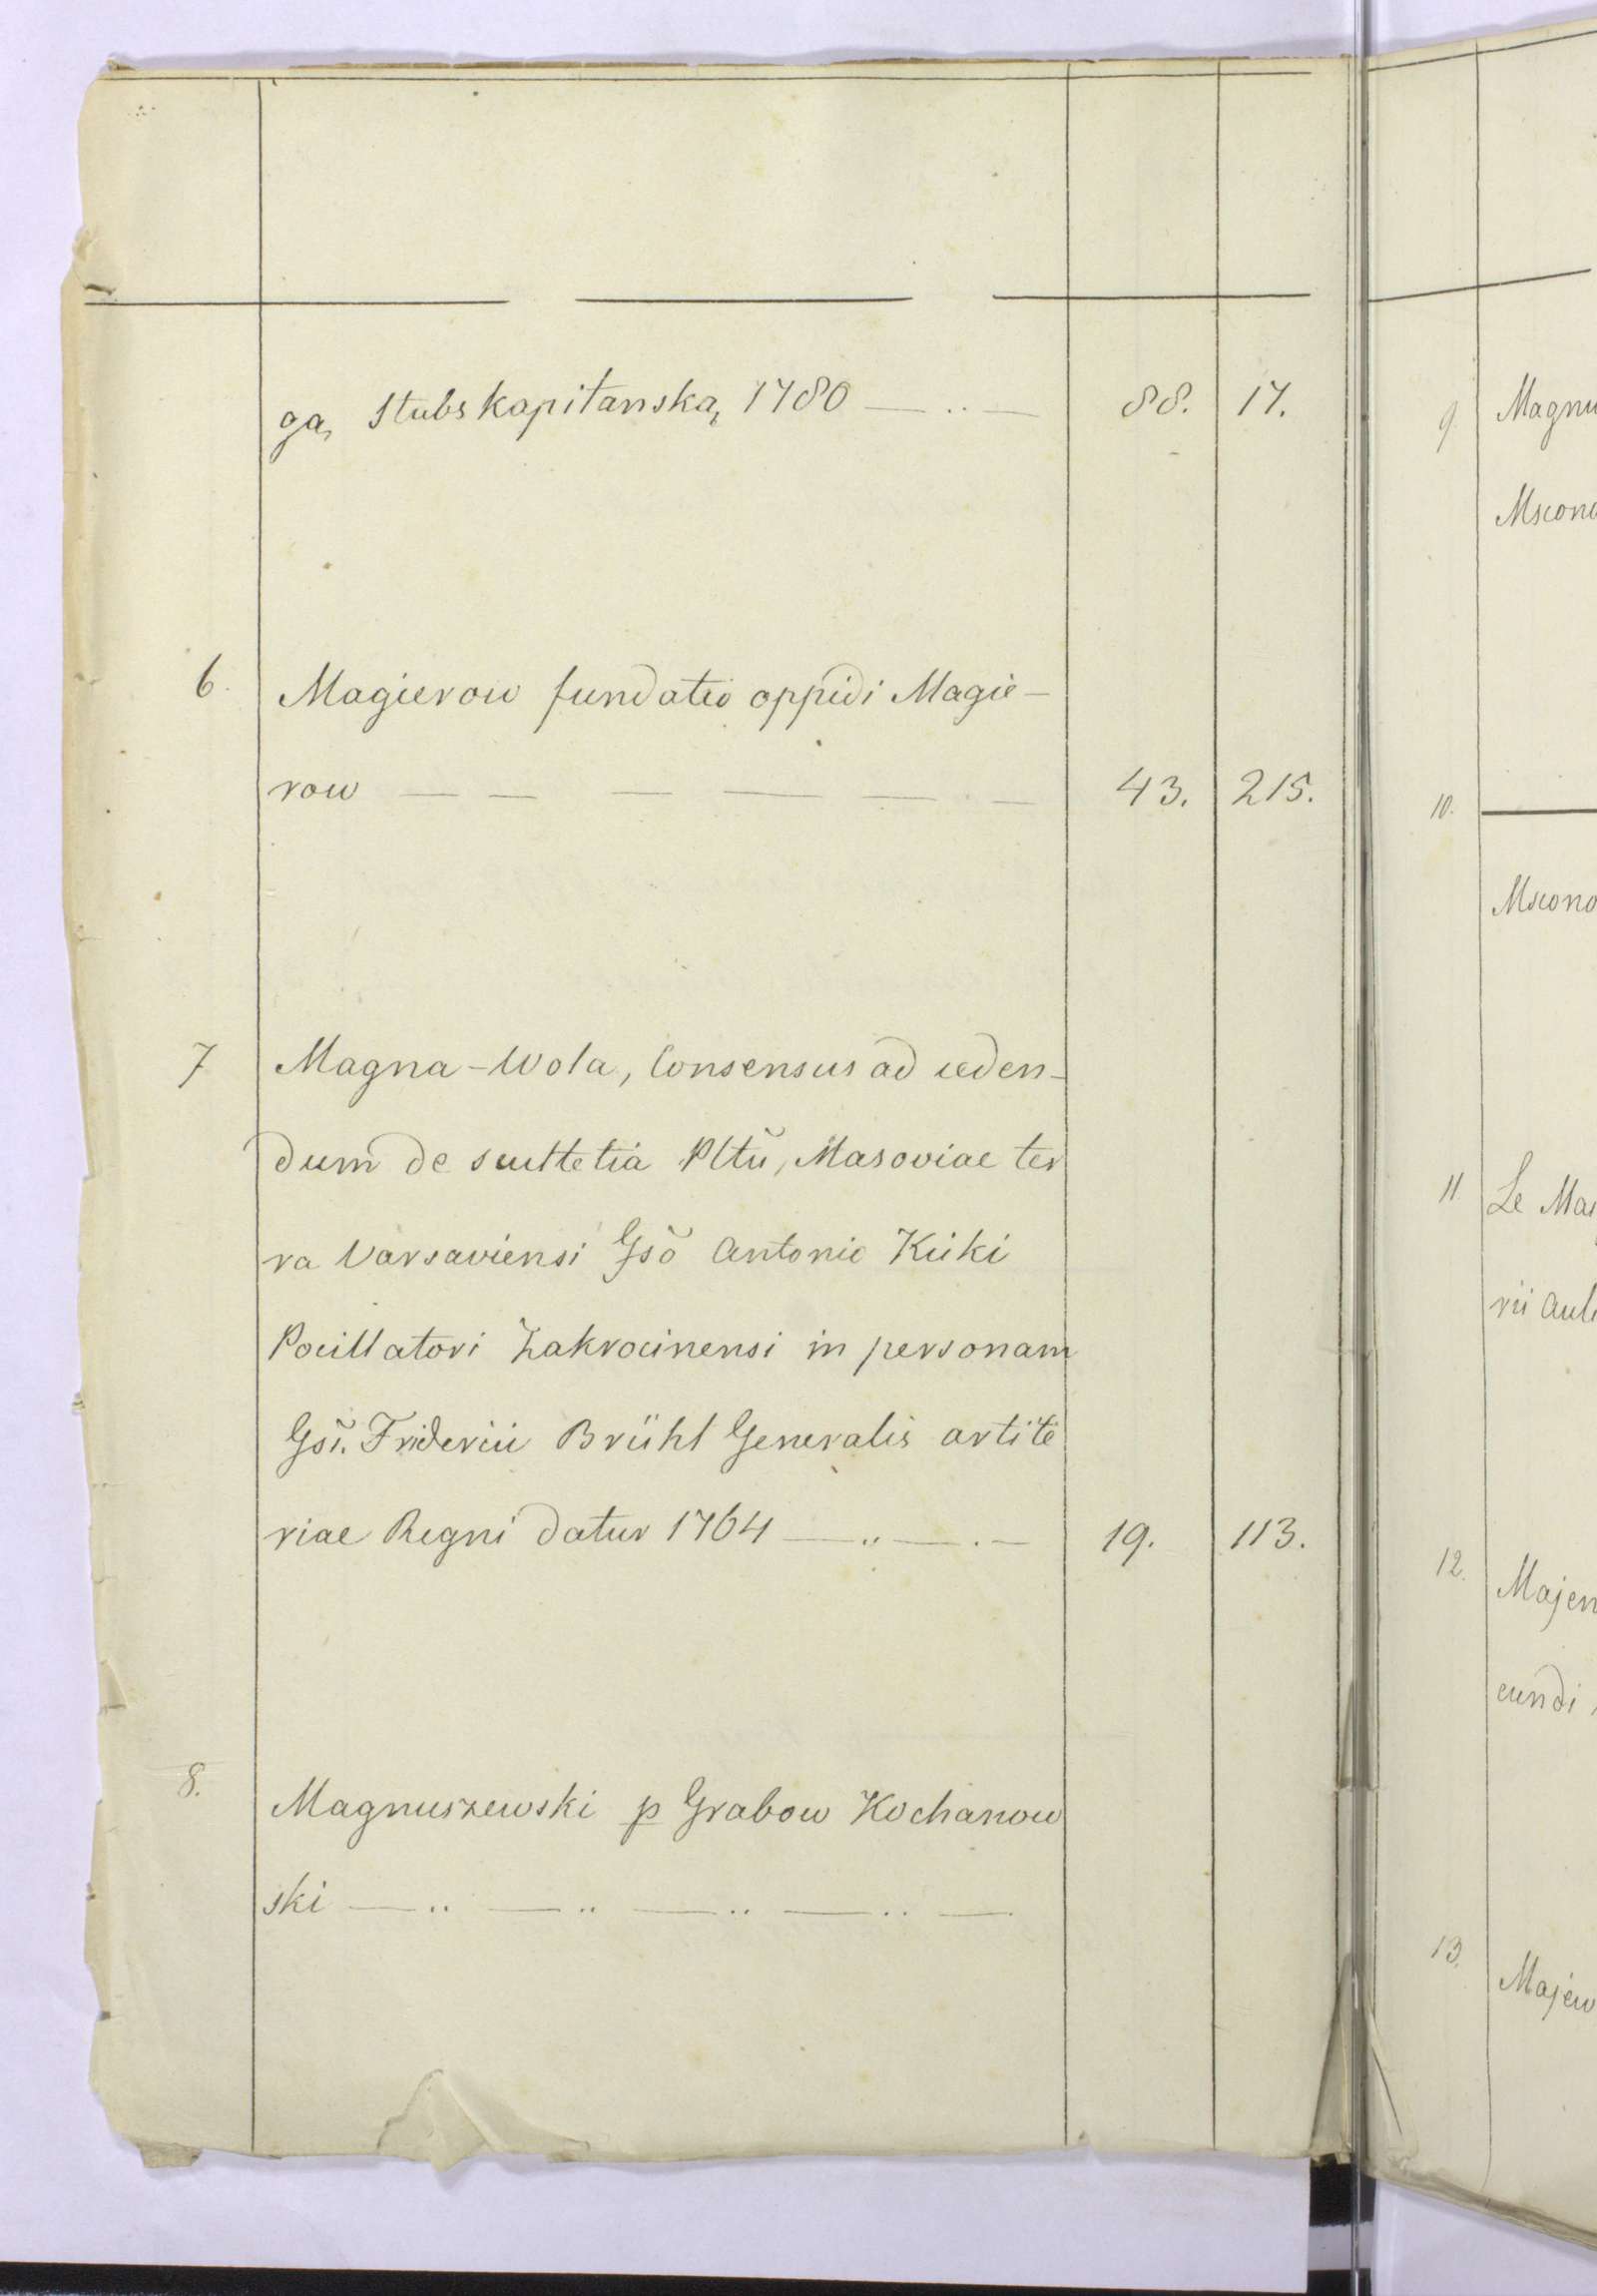 gą Stubskapitanską 1780 — .. — 88. 17.
6. Magierow fundatio oppidi Magie-
row — — — — — . — 43. 215.
7 Magna-Wola, Consensus ad ceden-
dum de scultetia Pltũ, Masoviae ter
ra Varsaviensi Gsõ Antonio Kicki
Pocillatori Zakrocinensi in personam
Gsĩ. Friderici Brühl Generalis artile
riae Regni datur 1764 — .. — . — 19. 113.
8. Magnuszewski p Grabow Kochanow
ski — .. — .. — .. — .. —
9. Magnu
Mscono
10. —
Mscono
11 Le Ma
rii Aul
12. Majen
cundi
13. Majew